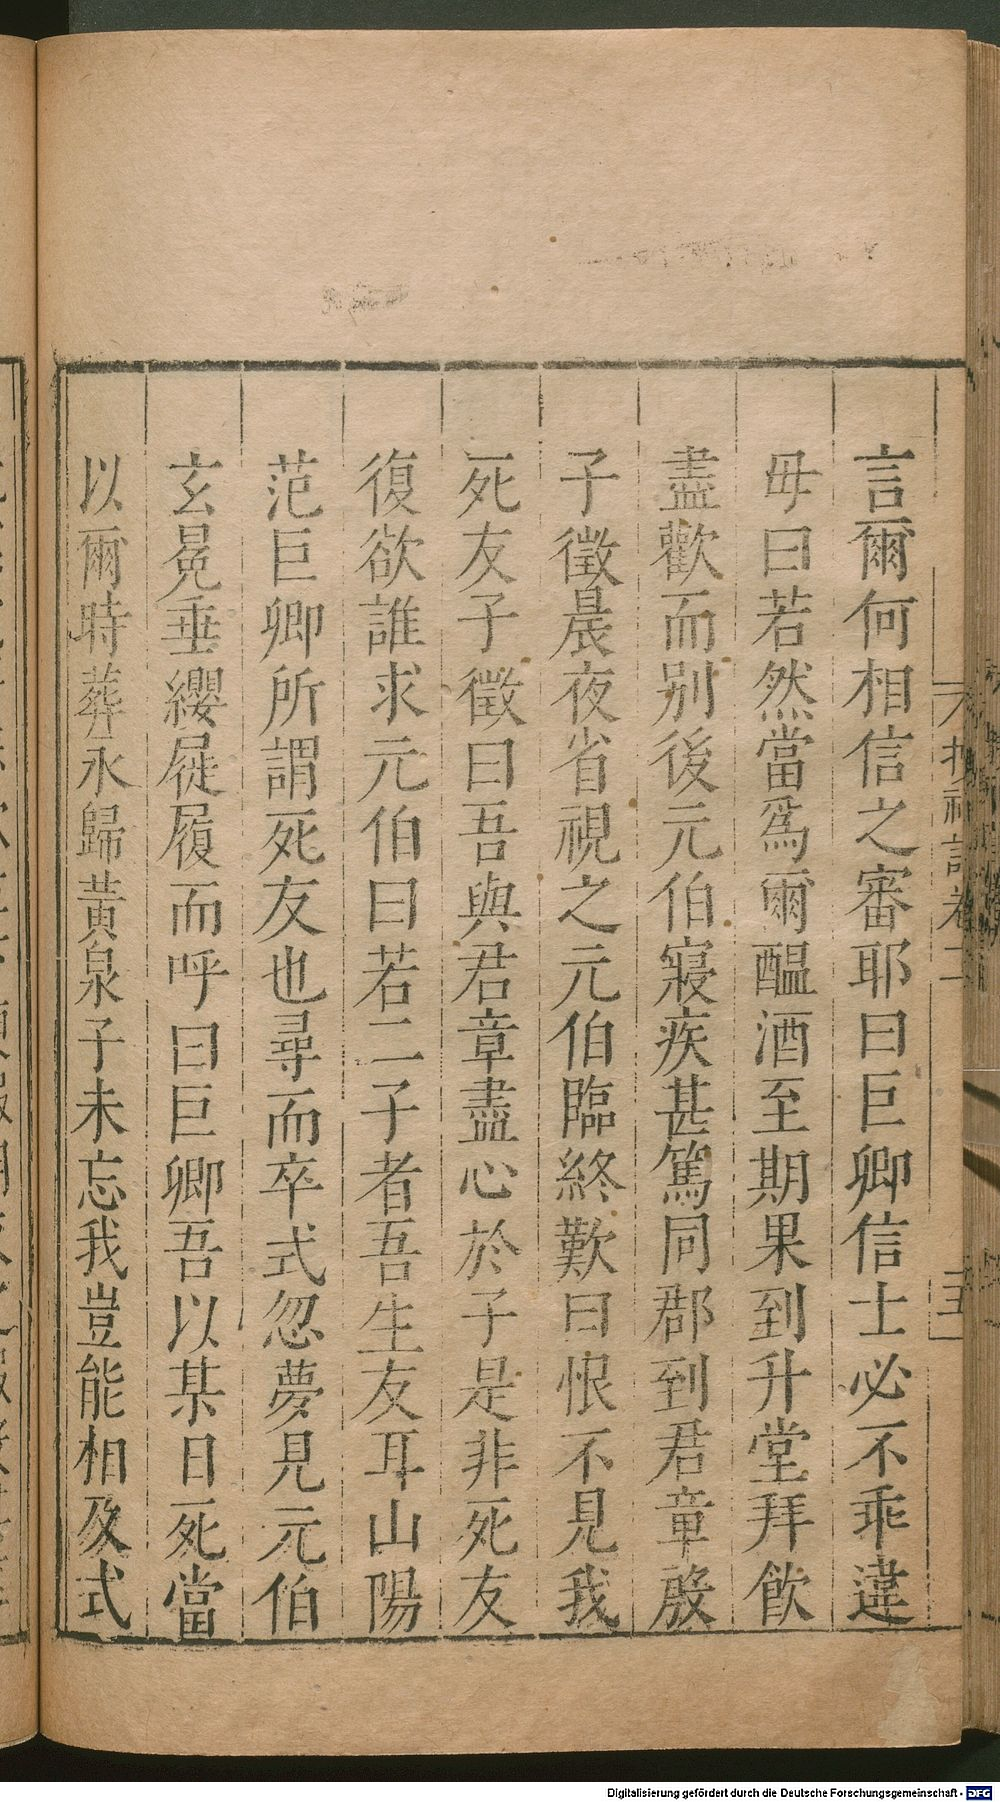 言爾何相信之審耶曰巨卿信士必不乖違
毋曰若然當爲爾醞酒至期果到升堂拜飲
盡歡而别後元伯寢疾甚篤同郡到君章殷
子徵晨夜省視之元伯臨終歎曰恨不見我
死友子徵曰吾與君章盡心於子是非死友
復欲誰求元伯曰若二子者吾生友耳山陽
范巨卿所謂死友也尋而卒式忽夢見元伯
玄冕垂纓屣履而呼曰巨卿吾以某日死當
以爾時葬永歸黃泉子未忘我豈能相及式
Digitalisierung gefördert durch die Deutsche Forschungsgemeinschaft - DFG